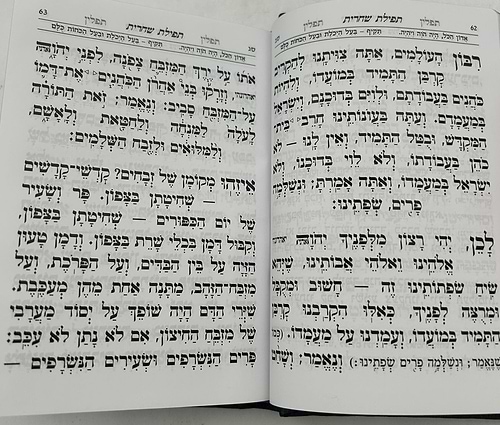 62
תפלין
תפילת שחרית
אדון הכל, היה הוה ויהיה. תקיף - בעל היכלת ובעל הכחות כלם
רִבּוֹן הָעוֹלָמִים, אַתָּה צִוִּיתָנוּ לְהַקְרִיב
קָרְבַּן הַתָּמִיד בְּמוֹעֲדוֹ, לִהְיוֹת
כֹּהֲנִים בַּעֲבוֹדָתָם, וּלְוִיִּם בְּדוּכָנָם, וְיִשְׂרָאֵל
בְּמַעֲמָדָם. וְעַתָּה בַּעֲוֹנוֹתֵינוּ חָרַב בֵּית־
הַמִּקְדָּשׁ, וּבָטֵל הַתָּמִיד, וְאֵין לָנוּ — לֹא
כֹהֵן בַּעֲבוֹדָתוֹ, וְלֹא לֵוִי בְּדוּכָנוֹ, וְלֹא
יִשְׂרָאֵל בְּמַעֲמָדוֹ, וְאַתָּה אָמַרְתָּ: וּנְשַׁלְּמָה
פָרִים, שְׂפָתֵינוּ:
לָכֵן, יְהִי רָצוֹן מִלְּפָנֶיךָ יְהוָה
אֱלֹהֵינוּ וֵאלֹהֵי אֲבוֹתֵינוּ, שֶׁיְּהֵא
שִׂיחַ שִׂפְתוֹתֵינוּ זֶה — חָשׁוּב וּמְקֻבָּל
וּמְרֻצֶּה לְפָנֶיךָ, כְּאִלּוּ הִקְרַבְנוּ קָרְבַּן
הַתָּמִיד בְּמוֹעֲדוֹ, וְעָמַדְנוּ עַל מַעֲמָדוֹ.
שֶׁנֶּאֱמַר: וּנְשַׁלְּמָה פָרִים שְׂפָתֵינוּ:) וְנֶאֱמַר: וְשָׁחַט
63
תפלין
תפילת שחרית
תפלין
סג
אדון הכל, היה הוה ויהיה. תקיף - בעל היכלת ובעל הכחות כלם
אֹתוֹ עַל יֶרֶךְ הַמִּזְבֵּחַ צָפֹנָה, לִפְנֵי יְהוָה
וְזָרְקוּ בְּנֵי אַהֲרֹן הַכֹּהֲנִים אֶת־דָּמוֹ
עַל־הַמִּזְבֵּחַ סָבִיב: וְנֶאֱמַר: זֹאת הַתּוֹרָה
לָעֹלָה לַמִּנְחָה וְלַחַטָּאת וְלָאָשָׁם,
וְלַמִּלּוּאִים וּלְזֶבַח הַשְּׁלָמִים:
אֵיזֶהוּ מְקוֹמָן שֶׁל זְבָחִים? קָדְשֵׁי־קָדָשִׁים
— שְׁחִיטָתָן בַּצָּפוֹן. פַּר וְשָׂעִיר
שֶׁל יוֹם הַכִּפּוּרִים — שְׁחִיטָתָן בַּצָּפוֹן,
וְקִבּוּל דָּמָן בִּכְלֵי שָׁרֵת בַּצָּפוֹן. וְדָמָן טָעוּן
הַזָּיָה עַל בֵּין הַבַּדִּים, וְעַל הַפָּרֹכֶת, וְעַל
מִזְבַּח־הַזָּהָב, מַתָּנָה אַחַת מֵהֶן מְעַכֶּבֶת.
שְׁיָרֵי הַדָּם הָיָה שׁוֹפֵךְ עַל יְסוֹד מַעֲרָבִי
שֶׁל מִזְבֵּחַ הַחִיצוֹן, אִם לֹא נָתַן לֹא עִכֵּב:
פָּרִים הַנִּשְׂרָפִים וּשְׂעִירִים הַנִּשְׂרָפִים —